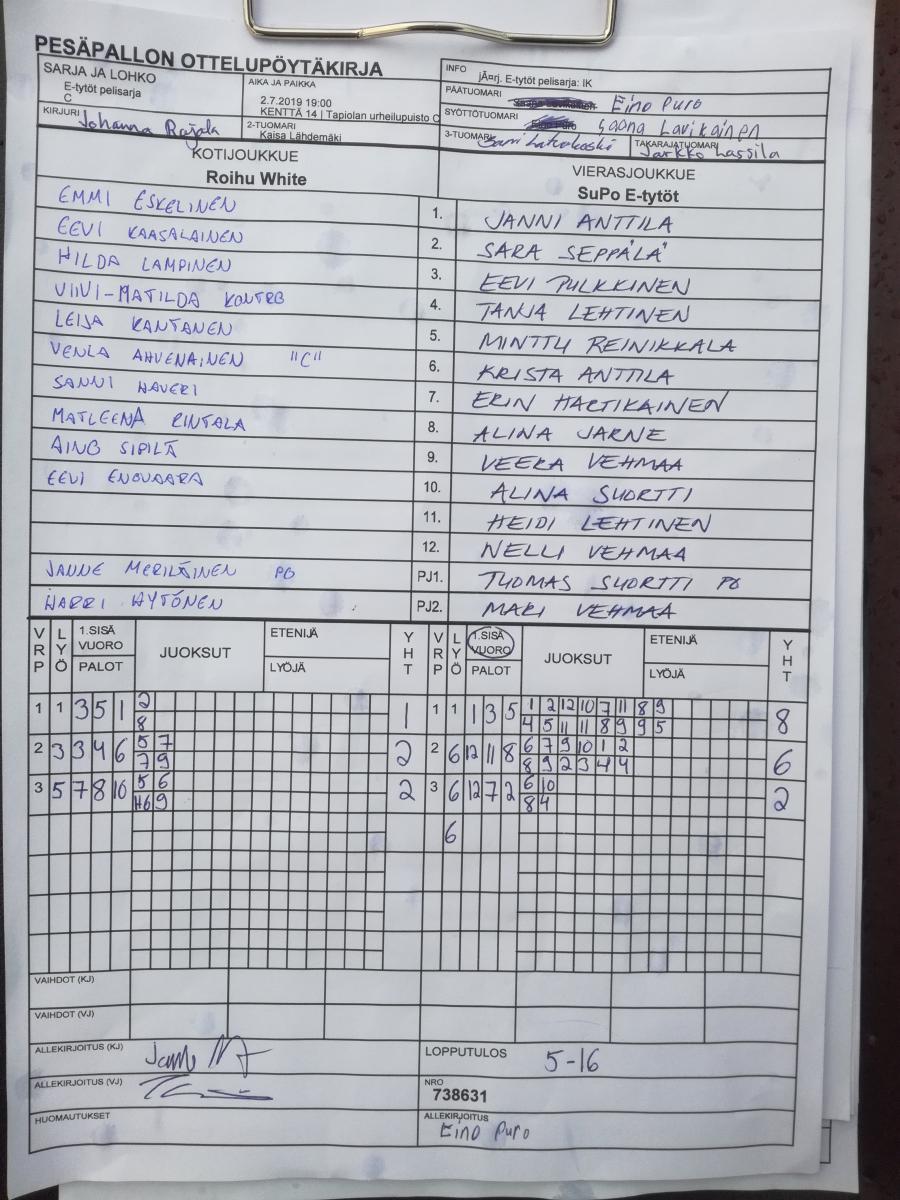 PESÄPALLON OTTELUPÖYTÄKIRJA
SARJA JA LOHKO
E-tytöt pelisarja
C
AIKA JA PAIKKA
2.7.2019 19:00
KENTTÄ 14 | Tapiolan urheilupuisto C
INFO
jÃ¤rj. E-tytöt pelisarja: IK
PÄÄTUOMARI
Eino Puro
KIRJURI
Johanna Rajala
2-TUOMARI
Kaisa Lähdemäki
SYÖTTÖTUOMARI
Eino Puro
Saana Lavikainen
3-TUOMARI
TAKARAJATUOMARI
Jarkko Lassila
KOTIJOUKKUE
Roihu White
VIERASJOUKKUE
SuPo E-tytöt
EMMI ESKELINEN 1. JANNI ANTTILA
EEVI KAASALAINEN 2. SARA SEPPÄLÄ
HILDA LAMPINEN 3. EEVI PULKKINEN
VIIVI-MATILDA KONTRO 4. TANJA LEHTINEN
LEIJA KANTANEN 5. MINTTU REINIKKALA
VENLA AHVENAINEN "C" 6. KRISTA ANTTILA
SANNI HAVERI 7. ERIN HARTIKAINEN
MATLEENA RINTALA 8. ALINA JARNE
AINO SIPILÄ 9. VEERA VEHMAA
EEVI ENOVAARA 10. ALINA SUORTTI
11. HEIDI LEHTINEN
12. NELLI VEHMAA
JANNE MERILÄINEN PO PJ1. TUOMAS SUORTTI PO
HARRI HYTÖNEN PJ2. MARI VEHMAA
VRP LYÖ 1.SISÄ VUORO PALOT JUOKSUT ETENIJÄ LYÖJÄ YHT VRP LYÖ 1.SISÄ VUORO PALOT JUOKSUT ETENIJÄ LYÖJÄ YHT
1 1 3 5 1 2 1 1 1 1 3 5 1 2 12 10 7 11 8 9 8
8 4 5 11 11 8 9 9 5
2 3 3 4 6 5 7 2 2 6 12 11 8 6 7 9 10 1 2 6
7 9 8 9 2 3 4 4
3 5 7 8 10 5 6 2 3 6 12 7 2 6 10 2
H6 9 8 4
6
VAIHDOT (KJ)
VAIHDOT (VJ)
ALLEKIRJOITUS (KJ)
LOPPUTULOS 5-16
ALLEKIRJOITUS (VJ)
NRO
738631
HUOMAUTUKSET
ALLEKIRJOITUS
Eino Puro